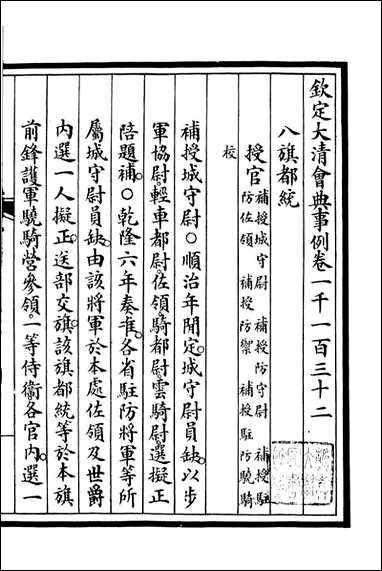 欽定大清會典事例卷一千一百三十二
八旗都統
授官 補授城守尉 補授防守尉 補授駐
防佐領 補授防禦 補授駐防驍騎
校
補授城守尉○順治年閒定城守尉員缺以步
軍協尉輕車都尉佐領騎都尉雲騎尉選擬正
陪題補○乾隆六年奏准各省駐防將軍等所
屬城守尉員缺由該將軍於本處佐領及世爵
內選一人擬正送部交旗該旗都統等於本旗
前鋒護軍驍騎營參領一等侍衞各官內選一